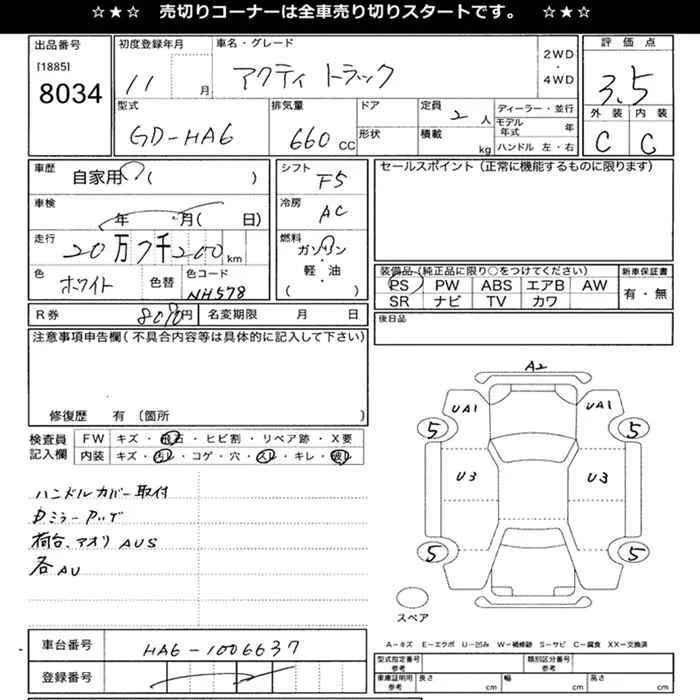 ☆★☆ 売切りコーナーは全車売り切りスタートです。 ☆★☆
出品番号
[1885]
8034
初度登録年月
11 月
車名・グレード
アクティ トラック
2WD
・
4WD
評価点
3.5
外装 内装
C C
型式
GD-HA6
排気量
660 CC
ドア
形状
定員
2 人
積載
kg
ディーラー・並行
モデル年式 年
ハンドル 左・右
車歴
自家用 ( )
車検
年 月( 日)
走行
20万7千200 km
色
ホワイト
色替
色コード
NH578
シフト
F5
冷房
AC
燃料
ガソリン
・
軽・油
( )
セールスポイント(正常に機能するものに限ります)
装備品(純正品に限り○をつけてください)
PS PW ABS エアB AW
SR ナビ TV カワ
新車保証書
有・無
後日品
R券
円
名変期限 月 日
注意事項申告欄(不具合内容等は具体的に記入して下さい)
修復歴 有(箇所 )
検査員
記入欄
FW キズ・飛石・ヒビ割・リペア跡・X要
内装 キズ・汚れ・コゲ・穴・スレ・キレ・破レ
ハンドルカバー取付
荷台、アオリ AUS
各AU
A2
UA1 UA1
5 5
U3 U3
5 5
スペア
A-キズ E-エクボ U-凹み W-補修跡 S-サビ C-腐食 XX-交換済
車台番号
HA6-1006637
登録番号
型式指定番号
参考
類別区分番号
参考
車庫証明用
参考
長さ cm 幅 cm 高さ cm